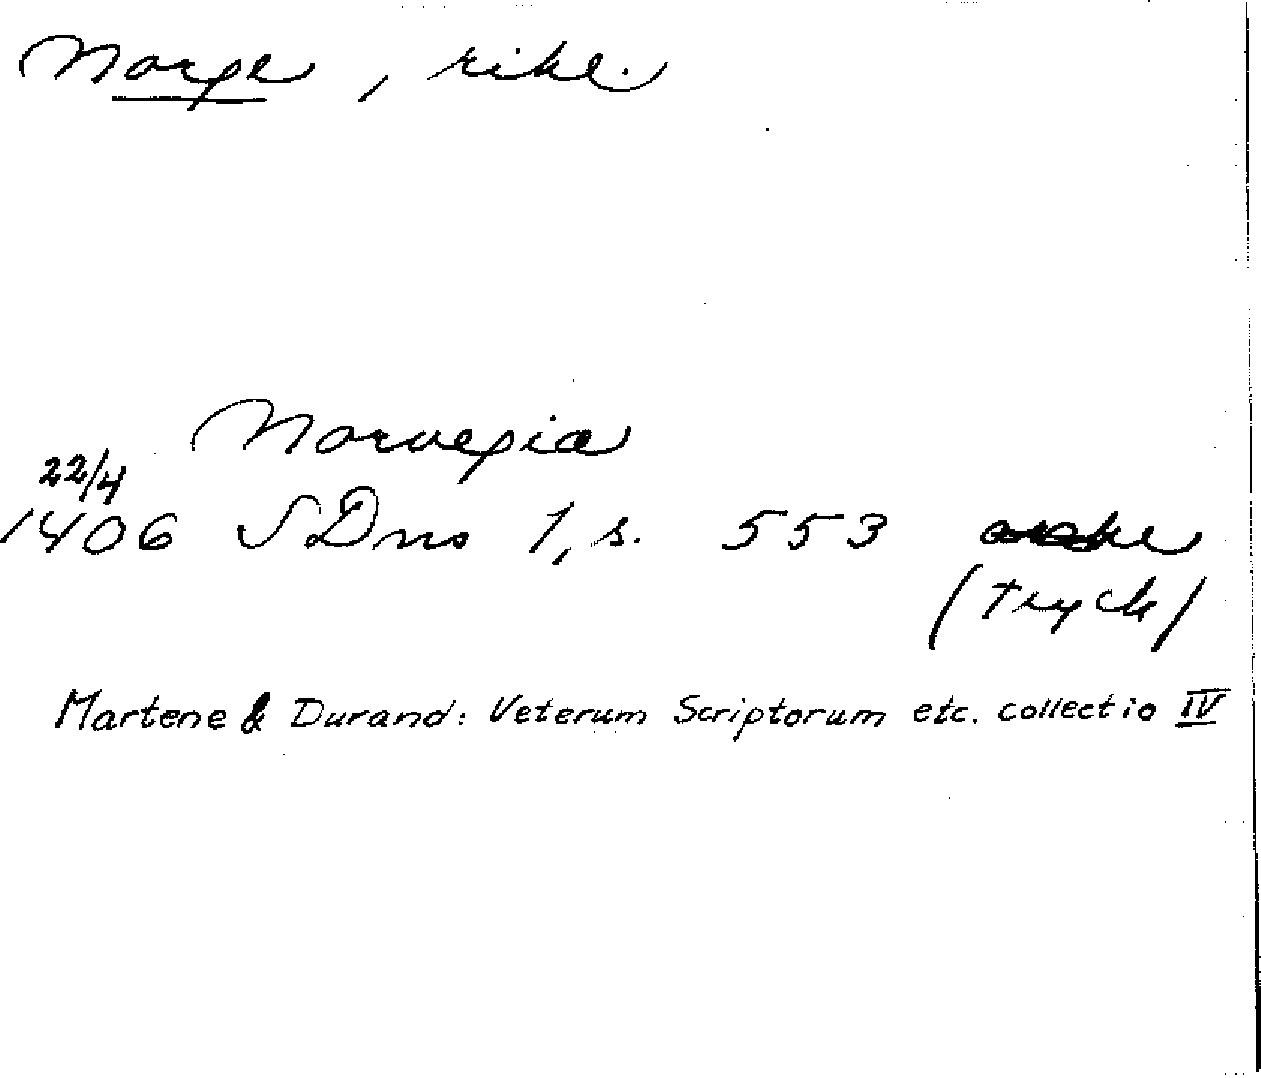 Norge, rike.
Norvegia
22/4
1406 SDns 1, s. 553
(tryck)
Martene & Durand: Veterum Scriptorum etc. collectio IV